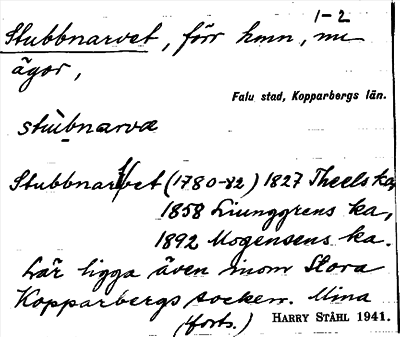 1-2
Stubbnarvet, förr hmn, nu
ägor,
Falu stad, Kopparbergs län.
stùbnarvæ
Stubbnarfvet (1780-82) 1827 Theels ka,
1858 Liunggrens ka,
1892 Mogensens ka.
Lär ligga även inom Stora
Kopparbergs socken. Mina
(forts.) HARRY STÅHL 1941.